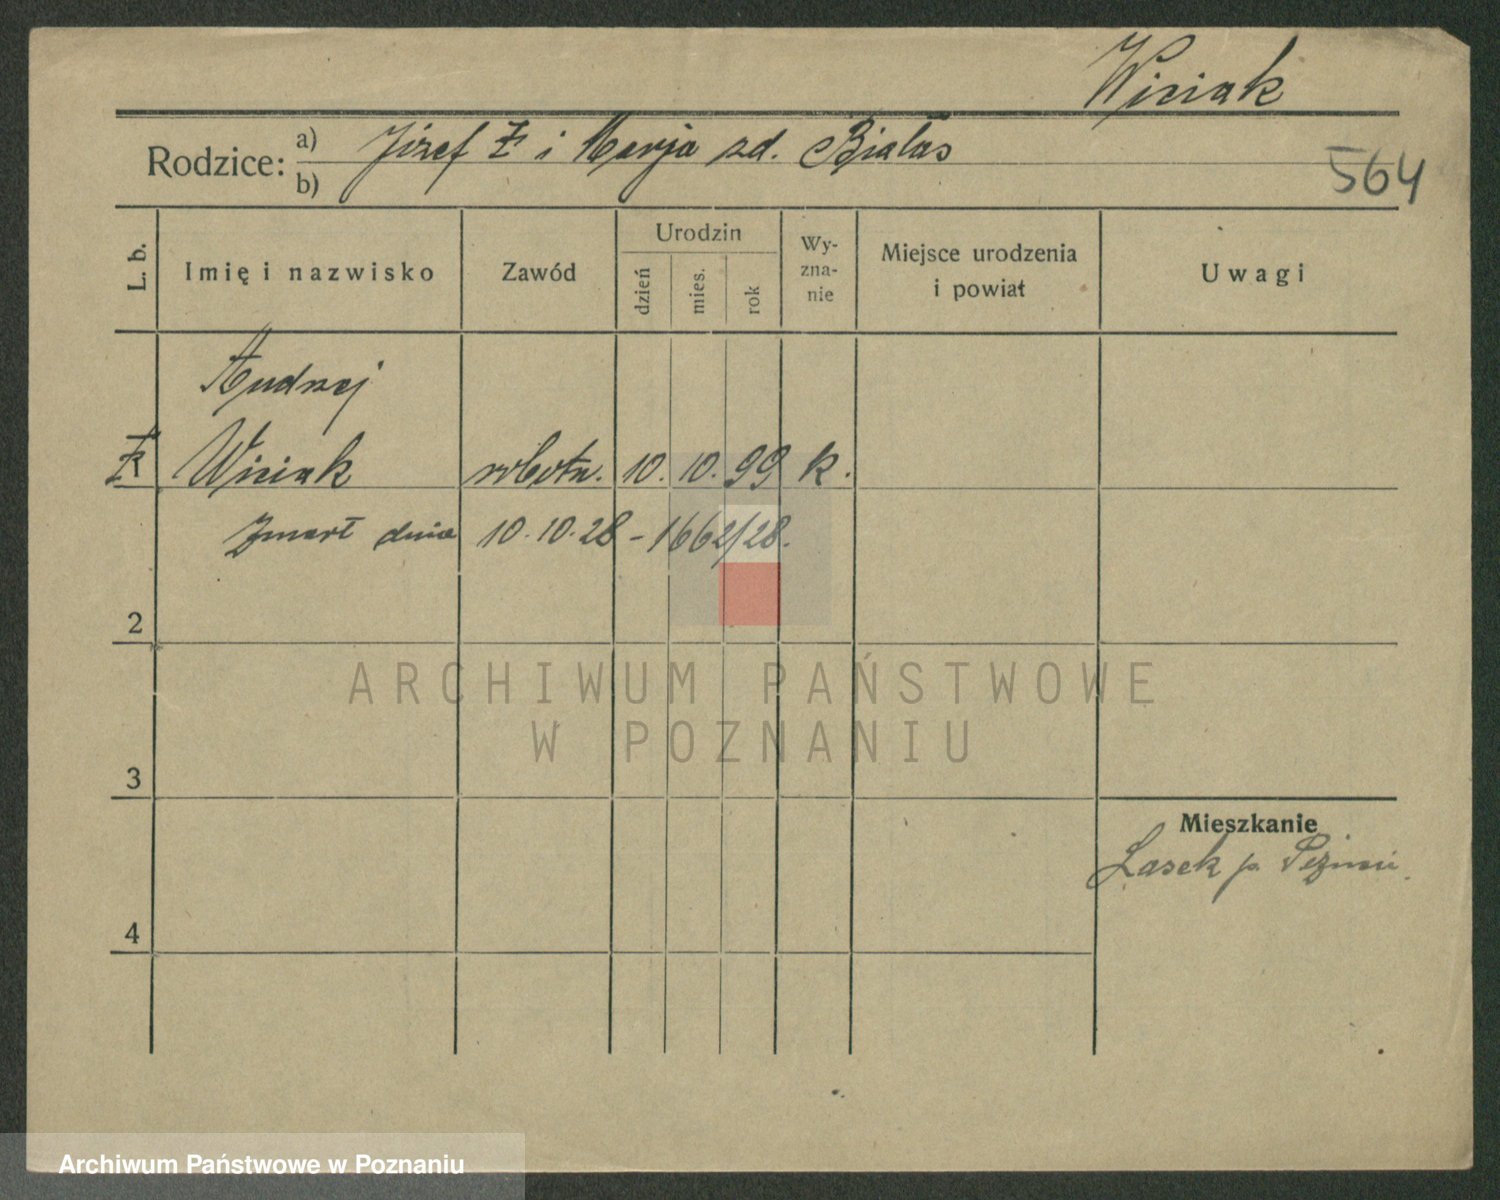 Wiciak
Rodzice: a) Józef Ƶ i Marja zd. Białas
b)
564
L. b.
Imię i nazwisko
Zawód
Urodzin
dzień
mies.
rok
Wy-
zna-
nie
Miejsce urodzenia
i powiat
Uwagi
Andrzej
1 Wiciak robotn. 10. 10. 99 k.
Zmarł dnia 10.10.28 - 1662/28.
2
ARCHIWUM PAŃSTWOWE
W POZNANIU
3
Mieszkanie
Lasek p.
4
Archiwum Państwowe w Poznaniu